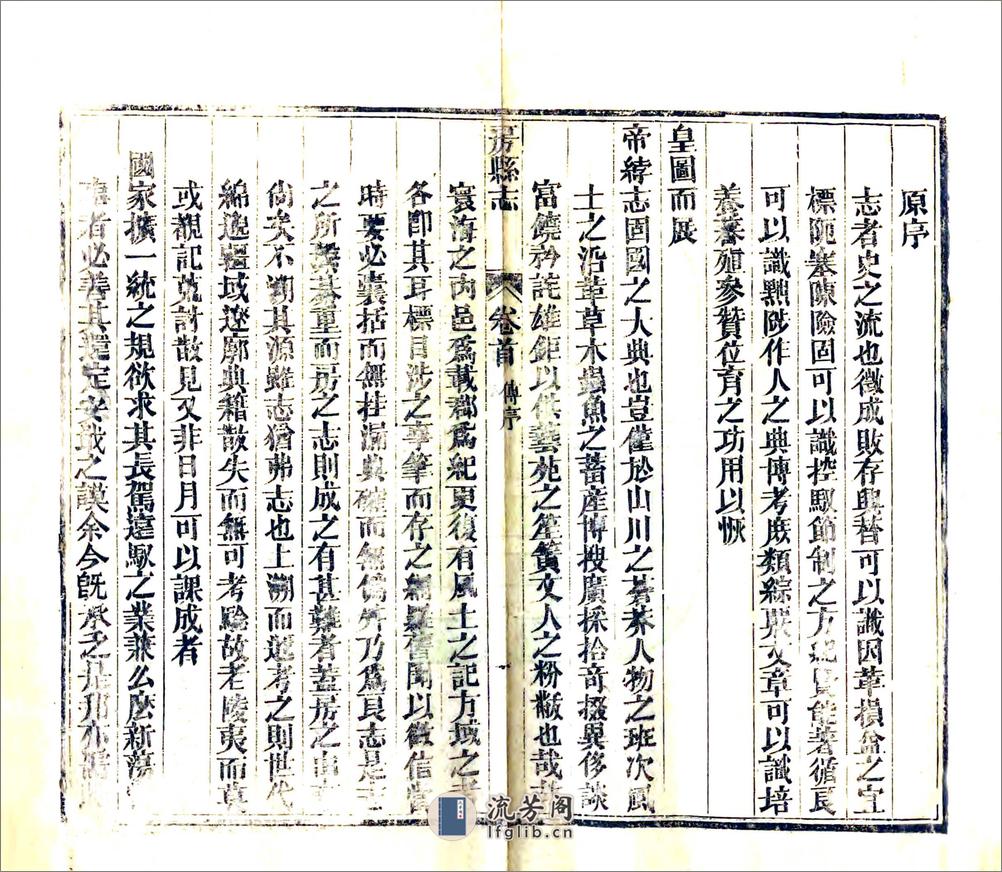 原序
志者史之流也徵成敗存興替可以識因革損益之宜
標阨塞陳險固可以識控馭節制之方紀賢能著循良
可以識黜陟作人之典博考庶類綜嚴文章可以識培
養蕃殖參贊位育之功用以恢
皇圖而展
帝緯志固國之大典也豈僅於山川之莽人物之班次風
土之沿革草木蟲魚之蓄產博搜廣採拾奇掇異侈談
富饒矜詫雄鉅以供藝苑之筌簧文人之粉黻也哉
房縣志
卷首
傳序
一
寰海之內邑為載郡為紀更復有風土之記方域之
各即其耳標目涉之筆而存之網羅舊聞以徵信
時要必囊括而無挂漏典確而無偽舛乃為良志是志
之所繫綦重而房之志則成之有甚難者蓋房之
尚矣不溯其源雖志猶弗志也上溯而遞考之則世代
綿邈疆域遼廓典籍散失而無可考驗故老陵夷而莫
或覩記旁討散見又非日月可以課成者
國家擴一統之規欲求其長駕遠馭之業兼么麽新蕩
者必善其還定安戢之謨余今旣承乏是邦亦
流芳阁
lfglib.cn